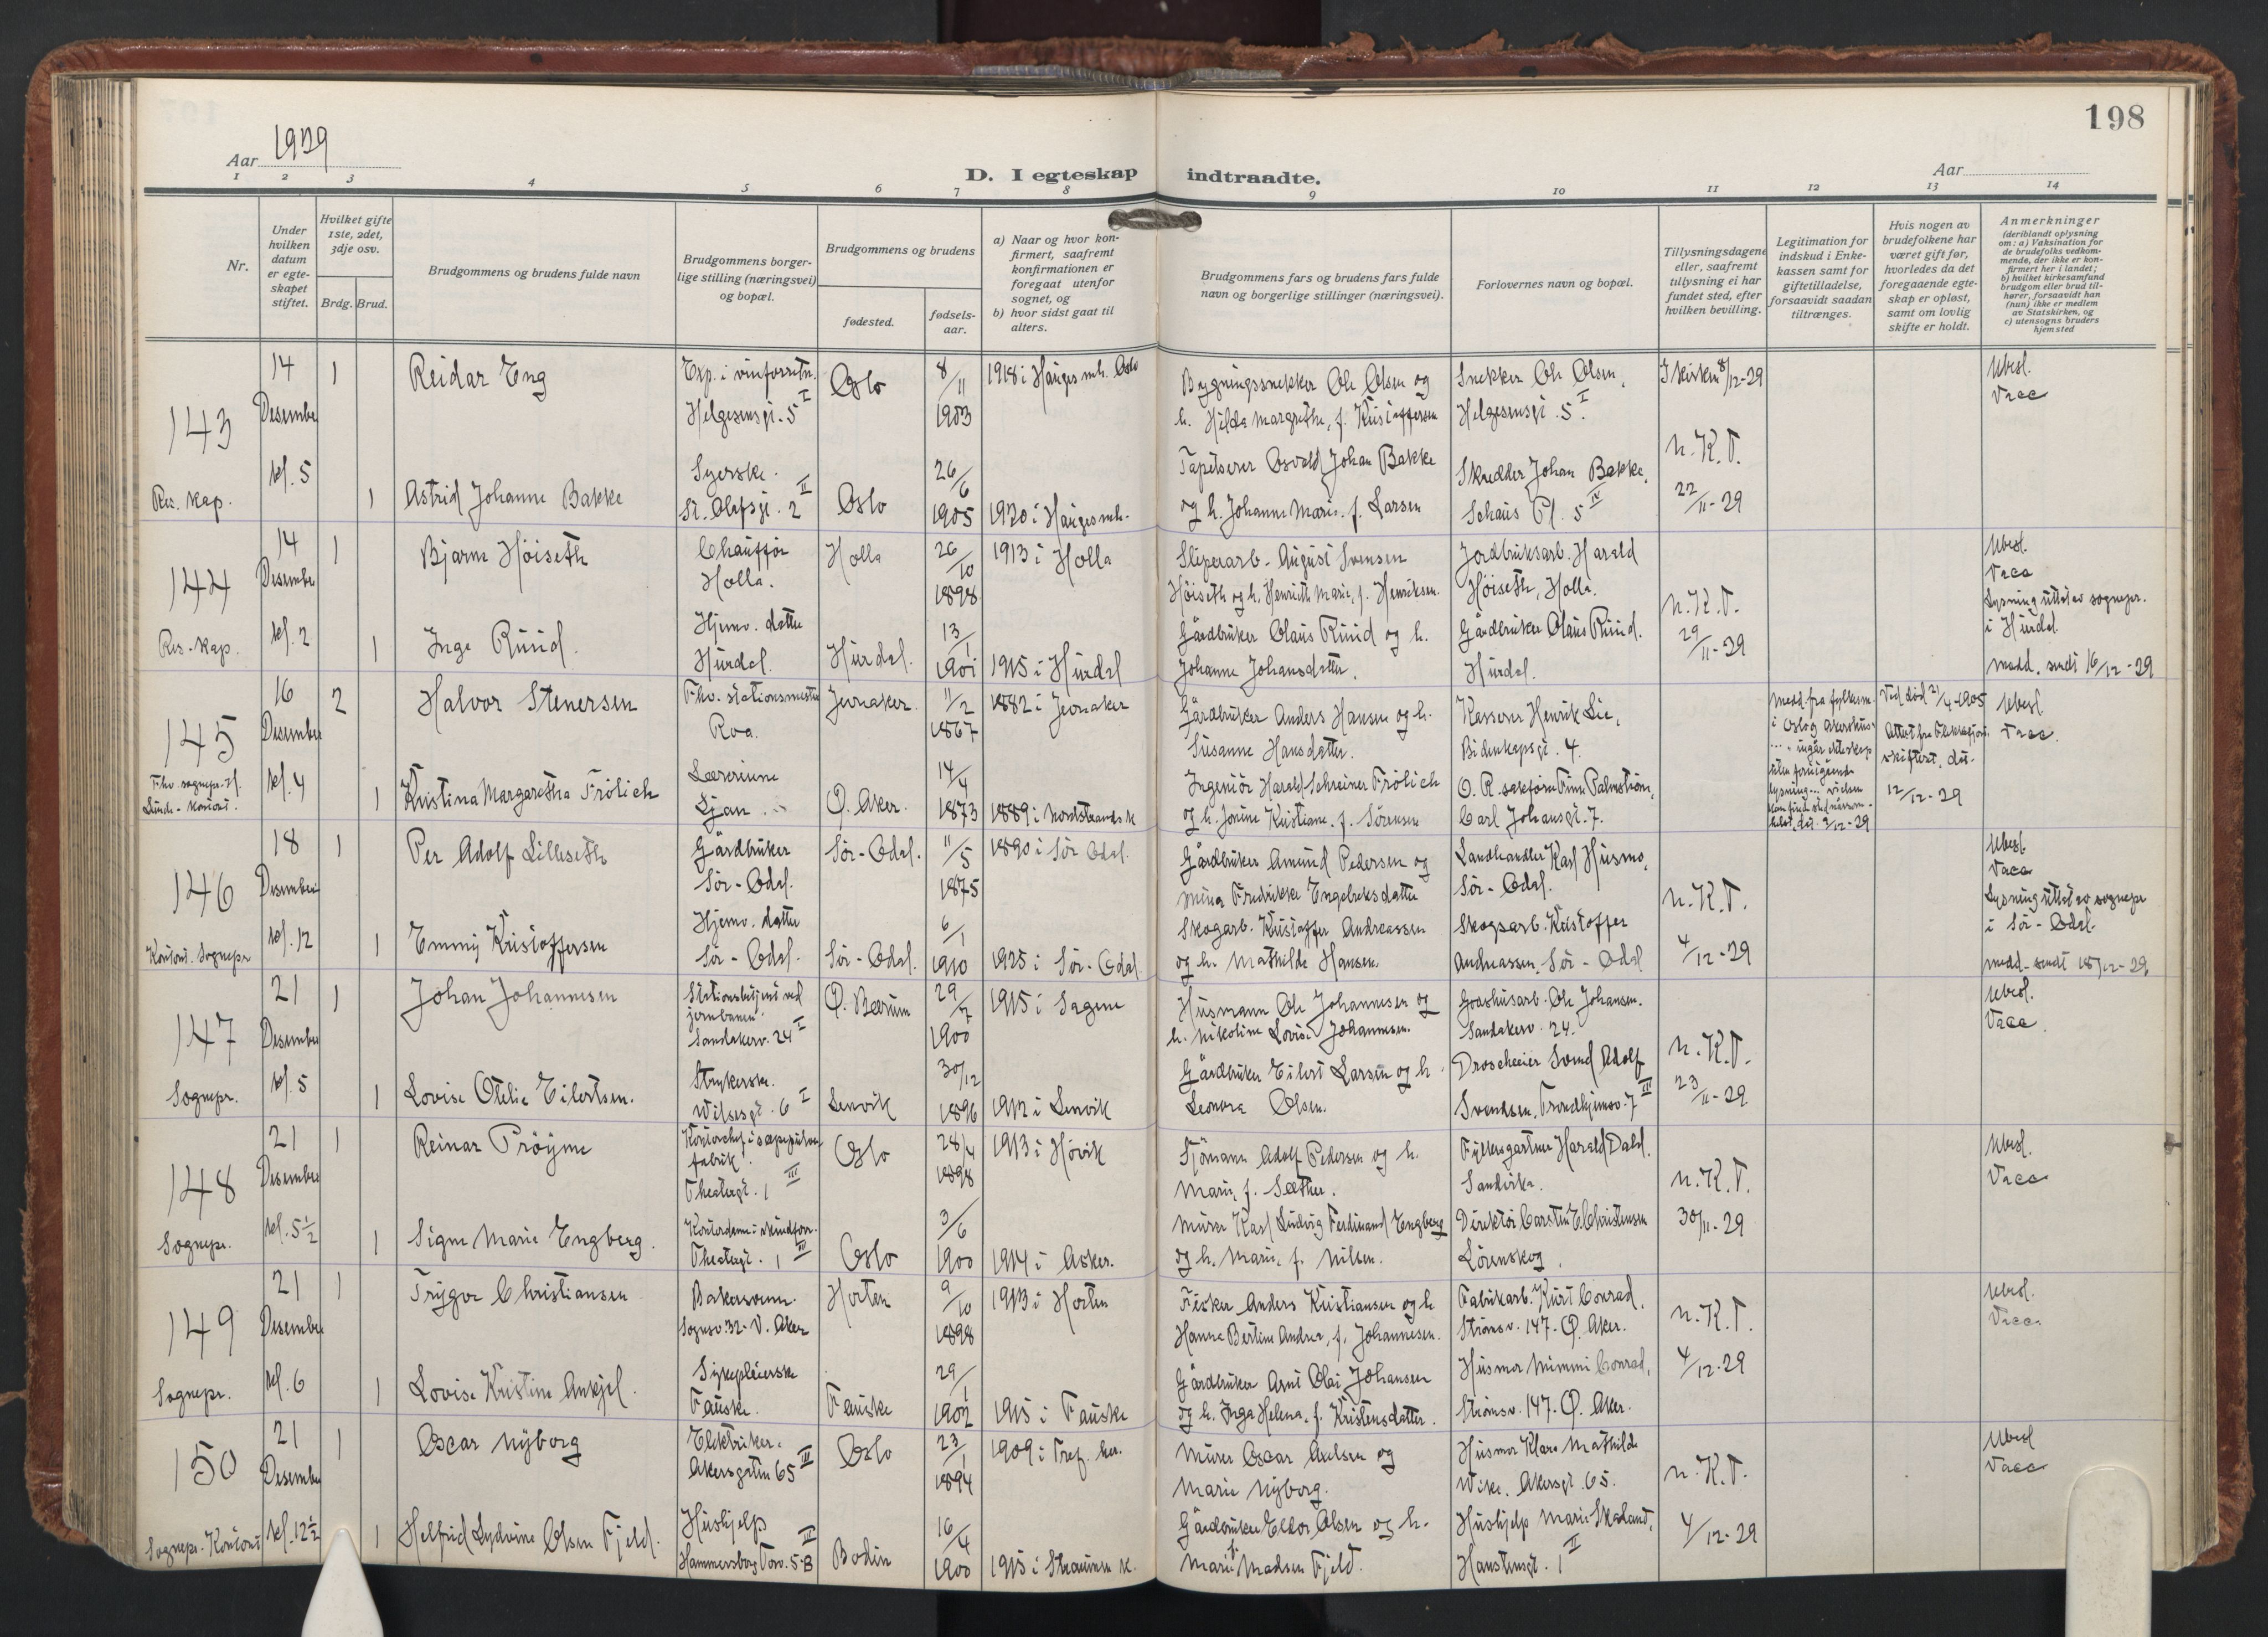 198
Aar 1929
D. I egteskap indtraadte.
Aar
1 2 3 4 5 6 7 8 9 10 11 12 13 14
Nr.
Under hvilken datum er egte-skapet stiftet.
Hvilket gifte 1ste, 2det, 3dje osv.
Brdg. Brud.
Brudgommens og brudens fulde navn
Brudgommens borger-lige stilling (næringsvei) og bopæl.
Brudgommens og brudens
fødested.
fødsels-aar.
a) Naar og hvor kon-firmert, saafremt konfirmationen er foregaat utenfor sognet, og
b) hvor sidst gaat til alters.
Brudgommens fars og brudens fars fulde navn og borgerlige stillinger (næringsvei).
Forlovernes navn og bopæl.
Tillysningsdagene eller, saafremt tillysning ei har fundet sted, efter hvilken bevilling.
Legitimation for indskud i Enke-kassen samt for giftetilladelse, forsaavidt saadan tiltrænges.
Hvis nogen av brudefolkene har været gift før, hvorledes da det foregaaende egte-skap er opløst, samt om lovlig skifte er holdt.
Anmerkninger (deriblandt oplysning om: a) Vaksination for de brudefolks vedkom-mende, der ikke er kon-firmert her i landet; b) hvilket kirkesamfund brudgom eller brud til-hører, forsaavidt han (hun) ikke er medlem av Statskirken, og c) utensogns bruders hjemsted
143 Res. kap.
14 Desember kl. 5
1 Reidar Eng
Exp. i vinforretn. Helgesensgt. 5 I
Oslo 8/11 1903
1918 i Hauges mh. Oslo
Bygningssnekker Ole Olsen og
h. Hilda Margrethe, f. Kristoffersen
Snekker Ole Olsen, Helgesensgt. 5 I
I kirken 8/12-29
Ubesl. Vacc
1 Astrid Johanne Bakke
Syerske. St. Olafsgt. 2 II
Oslo 26/6 1905
1920 i Hauges mh.
Tapetserer Osvald Johan Bakke
og h. Johanne Marie, f. Larsen
Skredder Johan Bakke, Schaus Pl. 5 IV
N.K.T. 22/11-29
144 Res. kap.
14 Desember kl. 2
1 Bjarne Höiseth
Chauffør Holla.
Holla 26/10 1898
1913 i Holla
Sliperarb. August Svensen
Höiseth og h. Henriette Marie, f. Henriksen.
Jordbruksarb. Harald Höiseth, Holla.
Ubesl. Vacc
Lysning uttat av sognepr. i Hurdal.
medd. sendt 16/12-29
1 Inga Ruud.
Hjemv. datter Hurdal.
Hurdal. 13/1 1901
1915 i Hurdal
Gårdbruker Olaus Ruud og h.
Johanne Johansdatter.
Gårdbruker Olaus Ruud. Hurdal.
N.K.T. 29/11-29
145 Fhv. sognepr. H. Lunde - Kontoret.
16 Desember kl. 4
2 Halvor Stenersen
Fhv. stationsmester Roa.
Jevnaker. 11/2 1867
1882 i Jevnaker
Gårdbruker Anders Hansen og h.
Susanne Hansdatter.
Kasserer Henrik Lie, Bidenkapsgt. 4.
Ubesl. Vacc.
1 Kristina Margaretha Frölich
Lærerinne Ljan
Ø. Aker. 14/4 1873
1889 i Nordstrands k
Ingeniör Harald Schreiner Frölich
og h. Jonine Kristiane, f. Sörensen
O. R. sakförer Finn Palmström, Carl Johansgt. 7.
146 Kontoret. Sognepr
18 Desember kl. 12
1 Per Adolf Lilleseth
Gårdbruker Sör-Odal.
Sör-Odal. 11/5 1875
1890 i Sör Odal.
Gårdbruker Amund Pedersen og
Mina Fredrikke Engebretsdatter
Landhandler Karl Husmo, Sör-Odal.
Ubesl. Vacc
Lysning uttat av sognepr i Sör-Odal.
medd. sendt 18/12-29
1 Emmy Kristoffersen
Hjemv. datter Sör-Odal.
Sör-Odal. 6/1 1910
1925 i Sör-Odal
Skogarb. Kristoffer Andreassen
og h. Mathilde Hansen.
Skogsarb. Kristoffer Andreassen, Sör-Odal
N.K.T. 4/12-29
147 Sognepr.
21 Desember kl. 5
1 Johan Johannesen
Stationsbetjent ved jernbanen. Sandakerv. 24 I
Ø. Bærum 29/7 1900
1915 i Sagene
Husmann Ole Johannesen og
h. Nikoline Lovise Johannesen.
Gasshusarb. Ole Johansen. Sandakerv. 24.
Ubesl. Vacc.
1 Lovise Otelie Eilertsen.
Strykerske. Wilsesgt. 6 I
Lenvik 30/12 1896
1912 i Lenvik
Gårdbruker Eilert Larsen og h.
Leonora Olsen.
Droscheeier Svend Adolf Svendsen, Trondhjemsv. 7 III
N.K.T. 23/11-29
148 Sognepr.
21 Desember kl. 5 1/2
1 Reinar Tröyme
Theatergt. 1 III
Oslo 28/4 1898
1913 i Hövik
Sjömann Adolf Pedersen og h.
Marie, f. Sæther.
Fylkesgartner Harald Dahl. Sandvika.
Ubesl. Vacc
1 Signe Marie Engberg.
Kontordame i skindforr. Theatergt. 1 III
Oslo 3/6 1900
1914 i Asker.
Murer Karl Ludvig Ferdinand Engberg
og h. Marie, f. Nilsen.
Direktör Carsten E Christensen Lörenskog.
N.K.T. 30/11-29
149 Sognepr.
21 Desember kl. 6
1 Trygve Christiansen
Bakersvenn. Sognsv. 32. V. Aker
Horten 9/10 1898
1913 i Horten
Fisker Anders Kristiansen og h.
Hanne Bertine Andrea, f. Johannesen.
Fabrikarb. Kurt Conrad, Strömsv. 147. Ø. Aker.
Ubesl. Vacc.
1 Lovise Kristine Ankjel.
Sykepleierske Fauske.
Fauske 29/1 1902
1915 i Fauske
Gårdbruker Arnt Olai Johansen
og h. Inga Helena, f. Kristensdatter.
Husmor Mimmi Conrad, Strömsv. 147. Ø. Aker.
N.K.T. 4/12-29
150 Sognepr. Kontoret
21 Desember kl. 12 1/2
1 Oscar Nyborg
Elektriker. Akersgaten 65 III
Oslo 23/1 1894
1909 i Tref. her.
Murer Oscar Axelsen og
Marie Nyborg.
Husmor Klara Mathilde Wike. Akersgt. 65.
Ubesl Vacc
1 Helfrid Lydvine Olsen Fjeld.
Hushjelp Hammersborg Torv. 5 B III
Bodin 16/4 1900
1915 i Straumen k.
Gårdbruker Eldor Olsen og h.
Marie Madsen Fjeld.
Hushjelp Marie Skaland, Hansteensgt. 1 II
N.K.T. 4/12-29